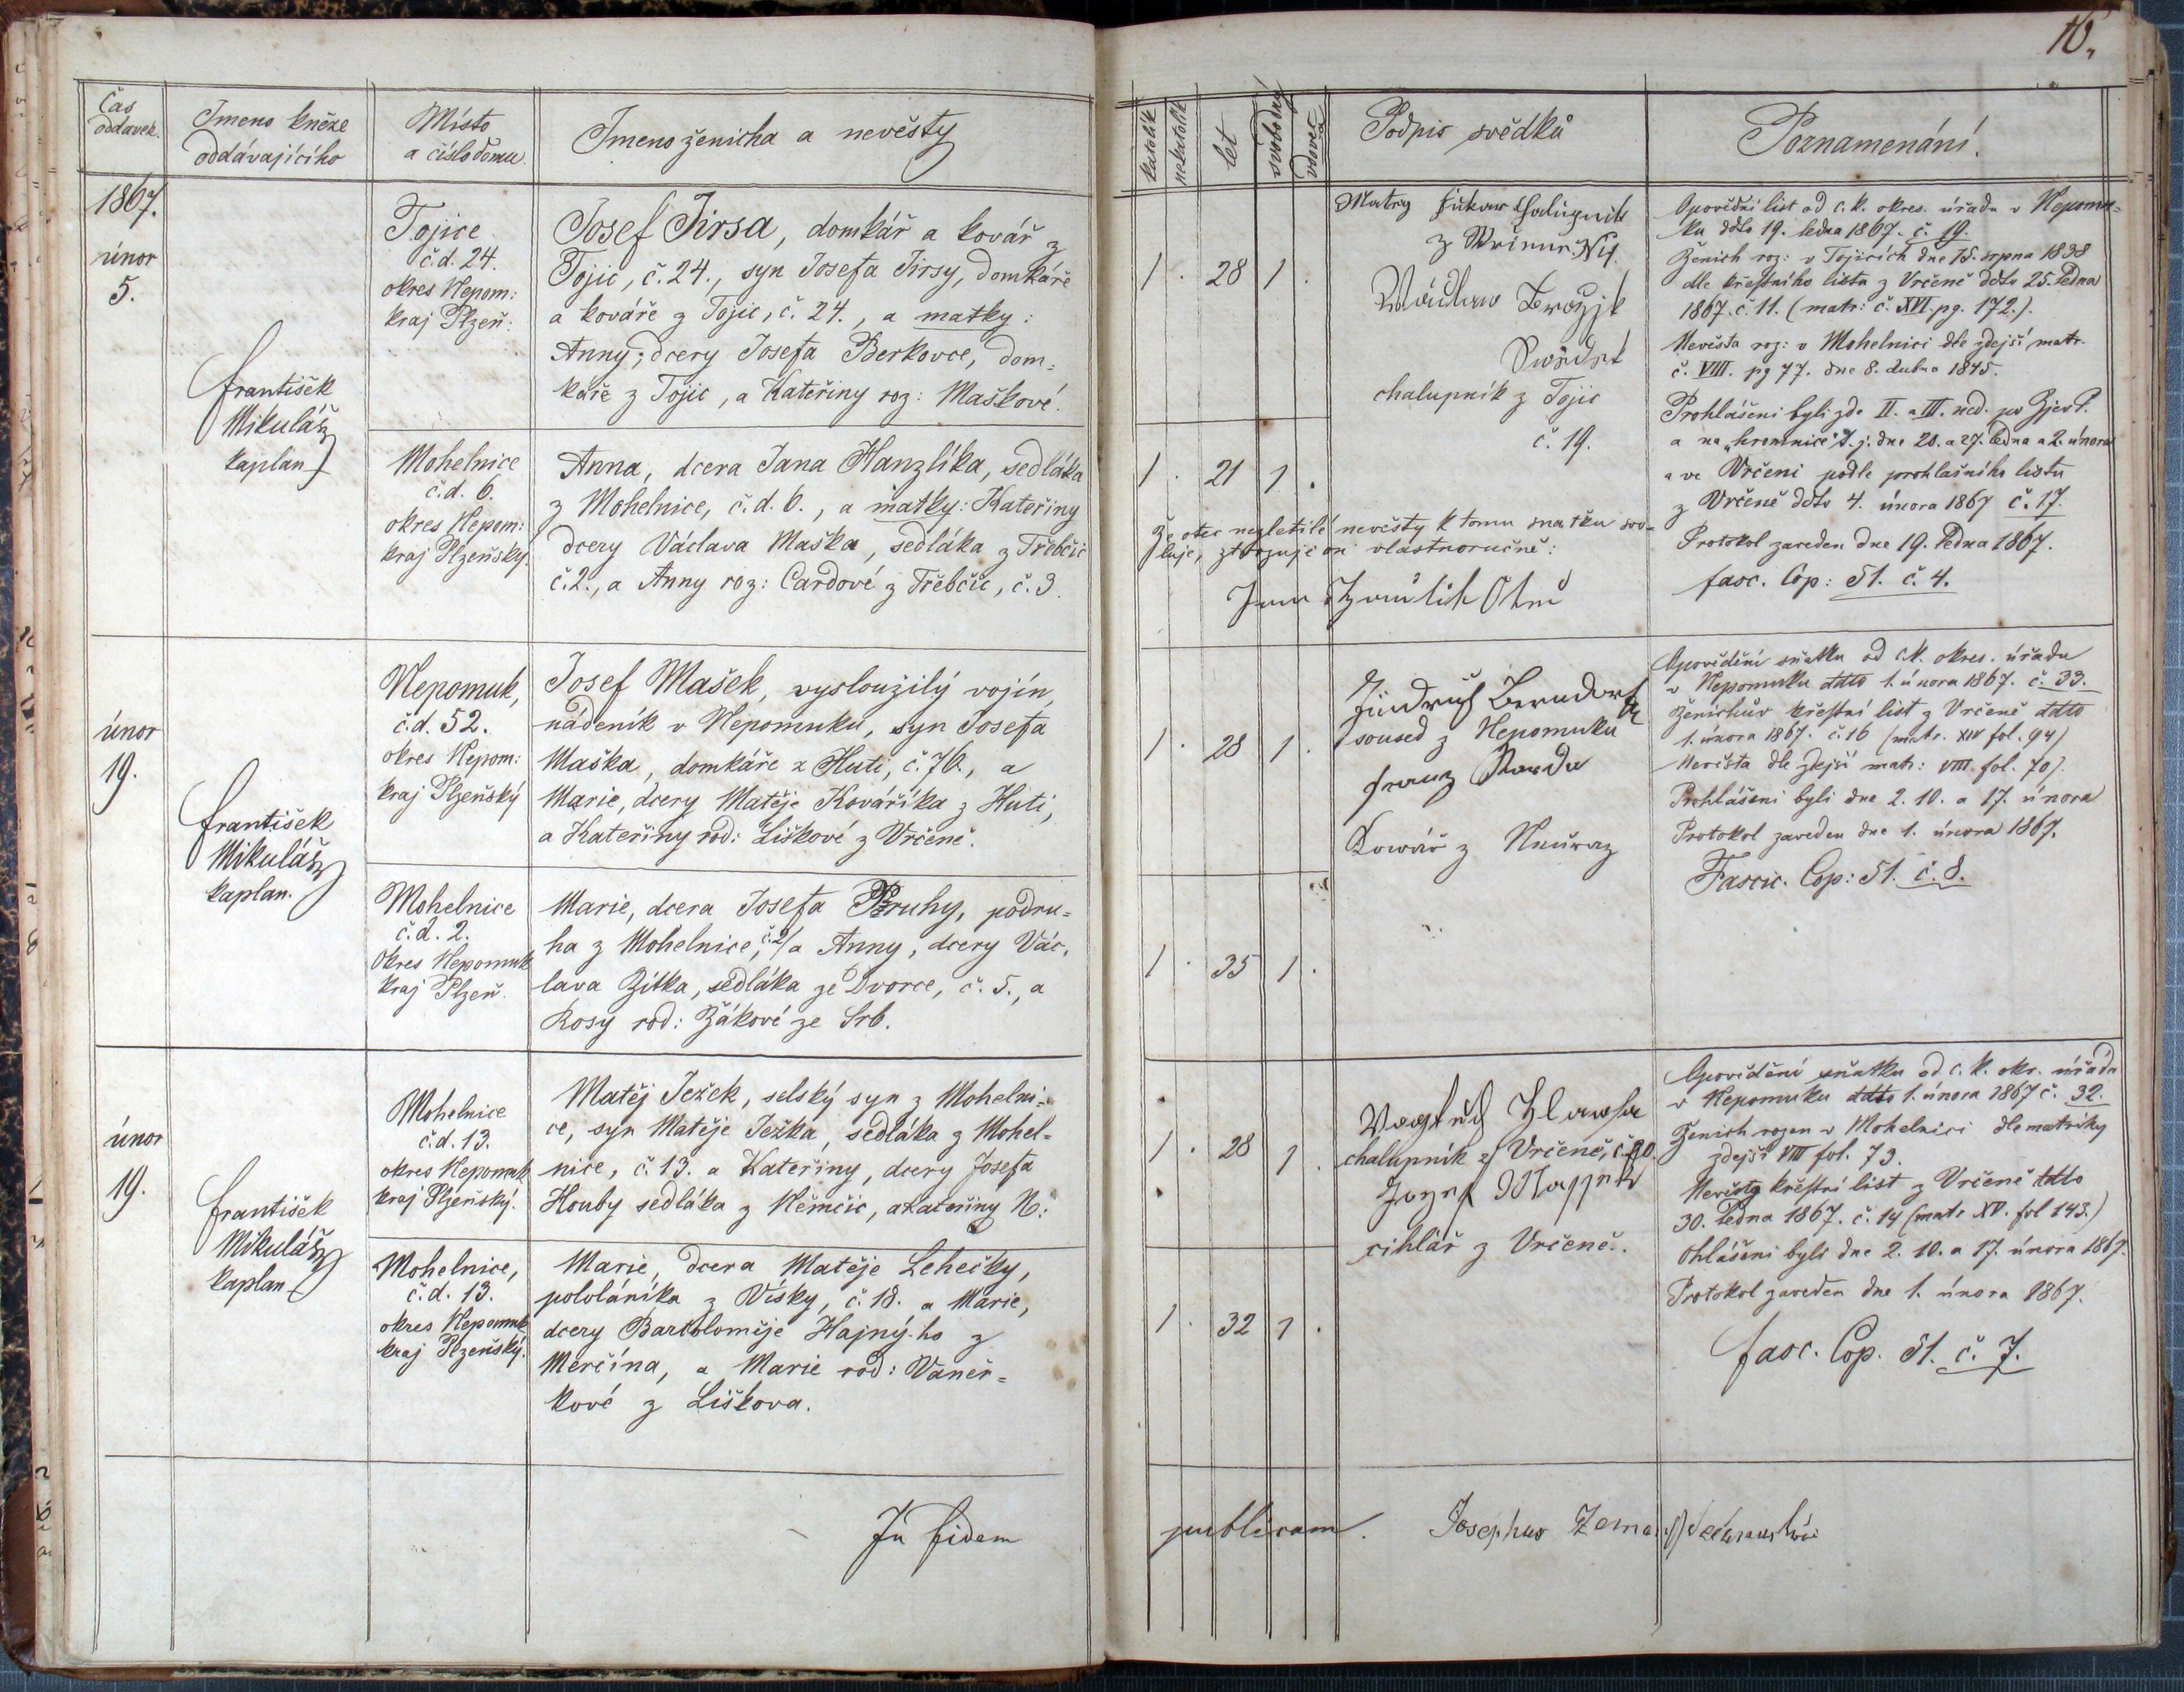 10.
Čas
oddavek.
Jmeno kněze
oddávajícího
Místo
a číslo domu.
Jmeno ženicha a nevěsty
1867.
únor
5.
František
Mikuláš
kaplan
Tojice
č.d. 24.
okres Nepom:
kraj Plzeň:
Josef Jirsa, domkář a kovář z
Tojic, č. 24., syn Josefa Jirsy, domkáře
a kováře z Tojic, č. 24., a matky:
Anny, dcery Josefa Berkovce, dom=
káře z Tojic, a Kateřiny roz: Maškové.
Mohelnice
č.d. 6.
okres Nepom:
kraj Plzeňský.
Anna, dcera Jana Hanzlíka, sedláka
z Mohelnice, č.d. 6., a matky: Kateřiny
dcery Václava Maška, sedláka z Třebčic
č.2., a Anny roz: Cardové z Třebčic, č. 3.
únor
19.
František
Mikuláš
kaplan.
Nepomuk,
č.d. 52.
okres Nepom:
kraj Plzeňský
Josef Mašek, vysloužilý vojín,
nádeník v Nepomuku, syn Josefa
Maška, domkáře z Huti, č. 76., a
Marie, dcery Matěje Kováříka z Huti,
a Kateřiny rod: Liškové z Vrčeně.
Mohelnice
č.d. 2.
Okres Nepomuk
kraj Plzeň.
Marie, dcera Josefa Pruhy, podru=
ha z Mohelnice, č.2/ a Anny, dcery Vác.
lava Zítka, sedláka ze Dvorce, č. 5., a
Rosy rod: Žákové ze Srb.
únor
19.
František
Mikuláš
kaplan
Mohelnice
č.d. 13.
okres Nepomuk
kraj Plzeňský.
Matěj Ježek, selský syn z Mohelni=
ce, syn Matěje Ježka, sedláka z Mohel=
nice, č. 13. a Kateřiny, dcery Josefa
Houby sedláka z Němčic, a Kateřiny N:
Mohelnice,
č.d. 13.
okres Nepomuk
kraj Plzeňský.
Marie, dcera Matěje Lehečky,
pololáníka z Vísky, č. 18. a Marie,
dcery Bartoloměje Hajný-ho z
Měrčína, a Marie rod: Vaněr=
kové z Liškova.
In fidem
katolík
nekatolík
let
svobodný
vdovec
Podpis svědků
Poznamenání.
1 . 28 1 .
z
Václaw
chalupník z Tojic
č. 19.
1 . 21 1 .
Že otec nezletilé nevěsty k tomu sňatku svo=
luje, ztvrzuje on vlastnoručně:
Opovědní list od c.k. okres. úřadu v Nepomu=
ku ddto 19. ledna 1867. č. 19.
Ženich roz: v Tojicích dne 15. srpna 1838
dle křestního listu z Vrčeně ddto 25. ledna
1867. č. 11. (matr: č. XVI. pg. 172.).
Nevěsta roz: v Mohelnici dle zdejší matr.
č. VIII. pg 77. dne 8. dubna 1845.
Prohlášeni byli zde II. a III. ned. po Zjev. P.
a na "hromnice", t. j. dne 20. a 27. ledna a 2. února
a ve Vrčeni podle prohlašního listu
z Vrčeně ddto 4. února 1867 č. 17.
Protokol zaveden dne 19. ledna 1867.
fasc. Cop: 51. č. 4.
1 . 28 1 .
Jindřich
soused z Nepomuku
Franz
Kowář z
1 . 35 1 .
Opovědění sňatku od c.k. okres. úřadu
v Nepomuku ddto 1. února 1867. č. 33.
Ženichův křestní list z Vrčeně ddto
1. února 1867. č. 16 (matr. XIV fol. 94)
Nevěsta dle zdejší matr: VIII. fol. 70).
Prohlášeni byli dne 2. 10. a 17. února
Protokol zaveden dne 1. února 1867.
Fascic. Cop: 51. č. 8.
1 . 28 1 .
chalupník z Vrčeně,
cihlář z Vrčeně.
1 . 32 1 .
Opovědění sňatku od c. k. okr. úřadu
v Nepomuku ddto 1. února 1867 č. 32.
Ženich rozen v Mohelnici dle matriky
zdejší VIII fol. 73.
Nevěsty křestní list z Vrčeně ddto
30. ledna 1867. č. 14 (matr XV. fol 143.)
Ohlášeni byli dne 2. 10. a 17. února 1867.
Protokol zaveden dne 1. února 1867.
fasc. Cop. 51. č. 7.
publicam. Josephus Zeman